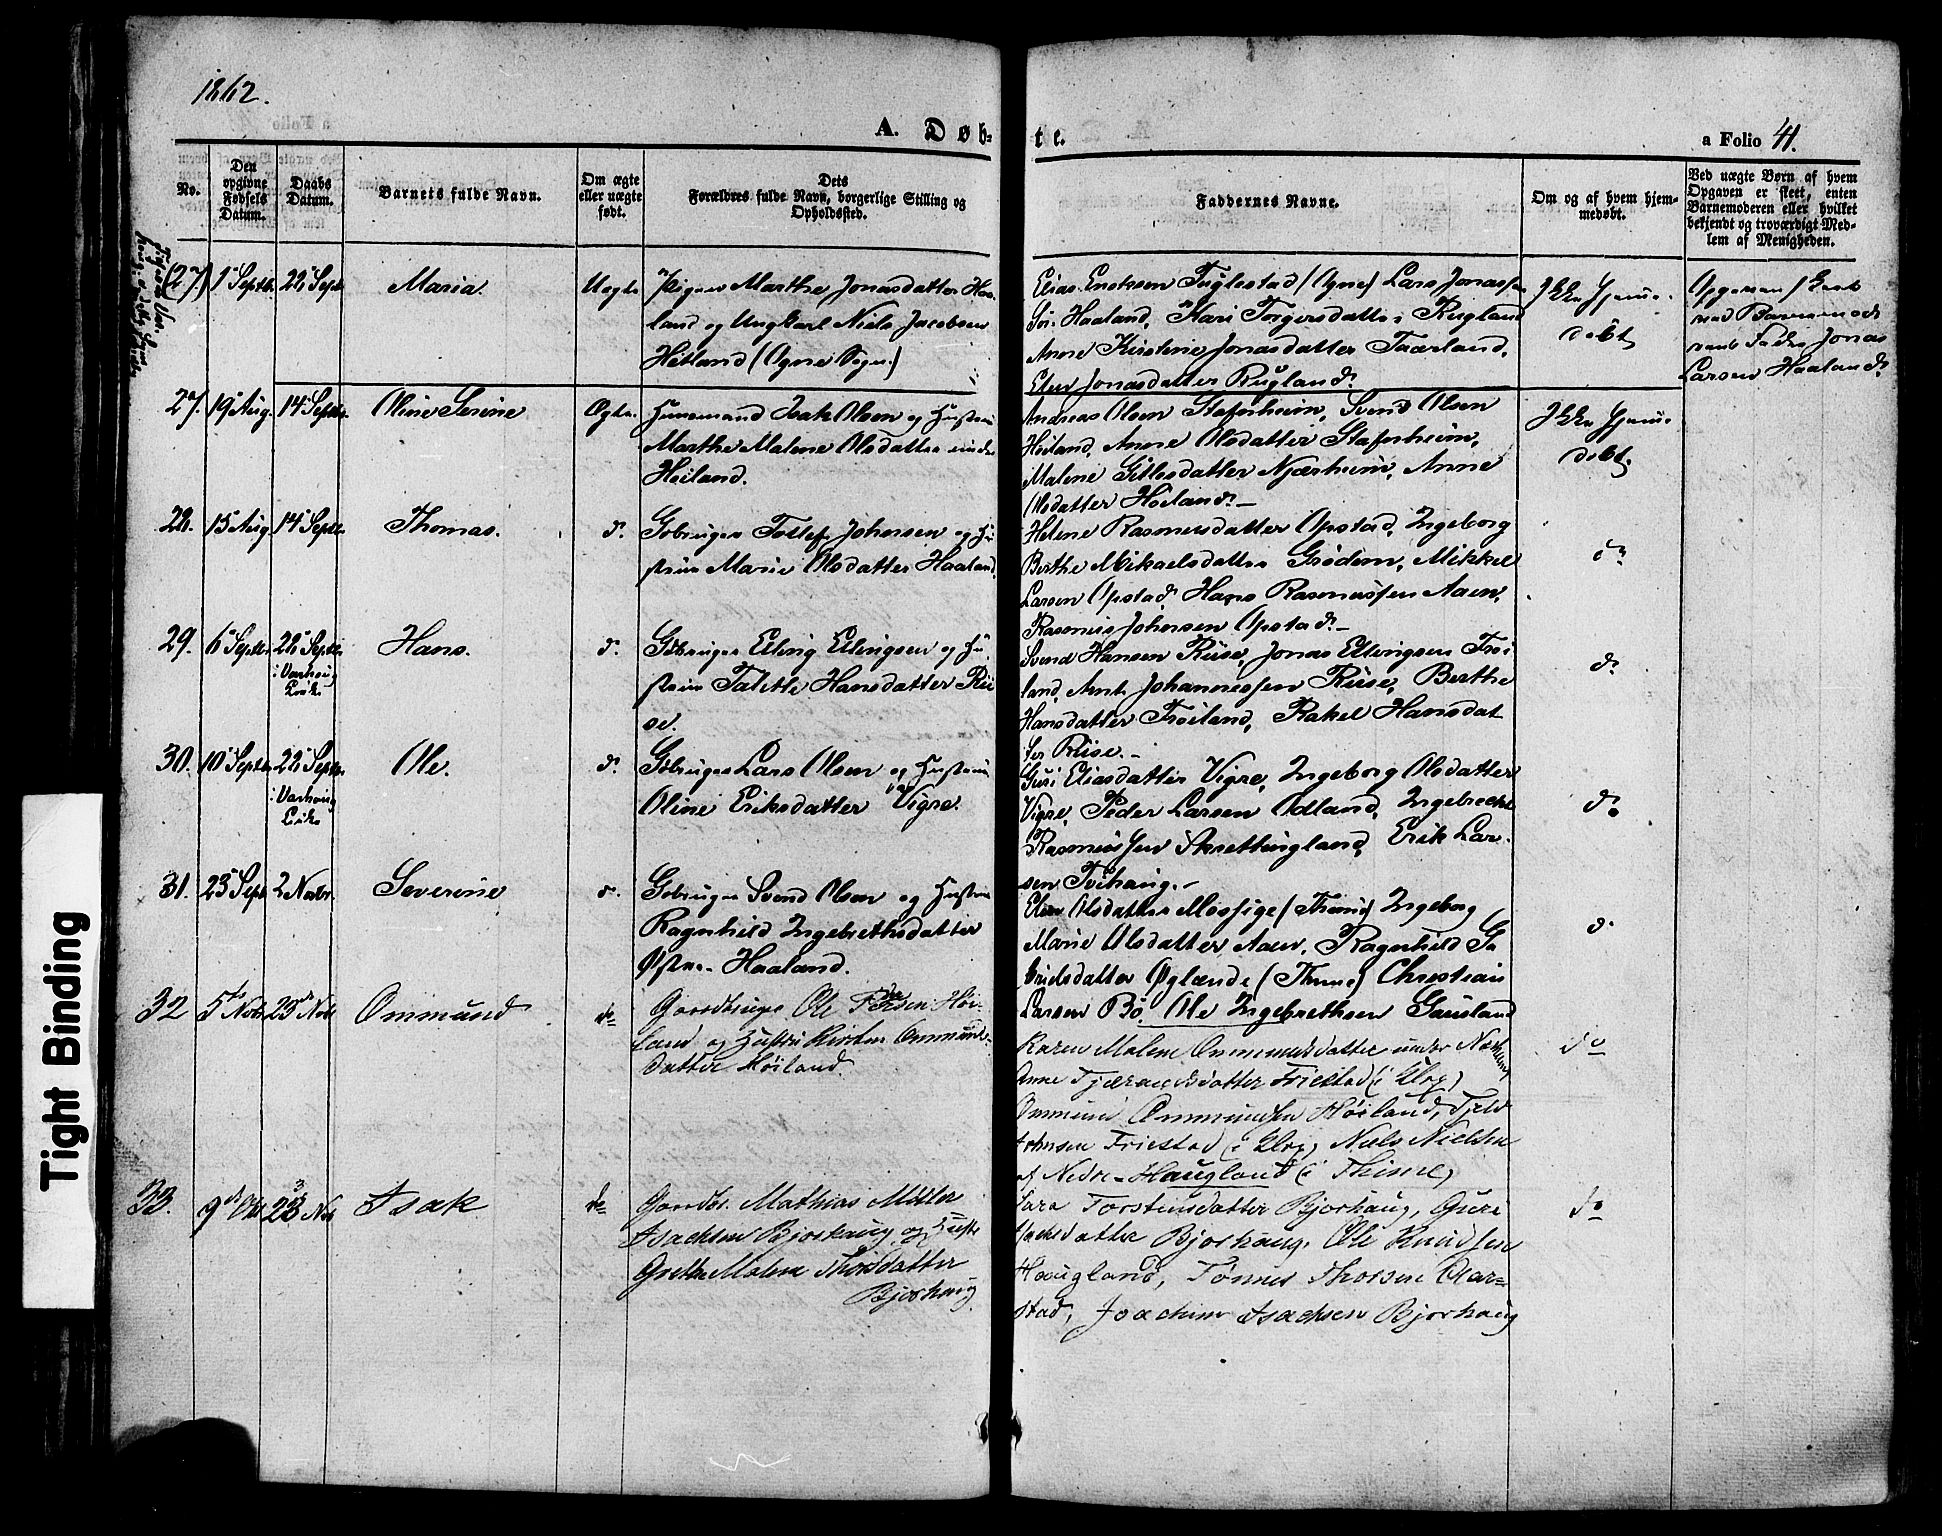 1862.
A. Døb-
te.
a Folio 41.
No.
Den opgivne Fødsels Datum.
Daabs Datum.
Barnets fulde Navn.
Om ægte eller uægte født.
Dets Forældres fulde Navn, borgerlige Stilling og Opholdssted.
Faddernes Navne.
Om og af hvem hjem-medøbt.
Ved uægte Børn af hvem Opgaven er skeet, enten Barnemoderen eller hvilket bekjendt og troværdigt Med-lem af Menigheden.
(27) 1 Septbr. 28 Sept. Maria. Uegte Pigen Marthe Jonasdatter Haa-
land og Ungkarl Niels Jacobsen
Hitland (Ogne Sogn)
Elias Enoksen Fuglestad (Ogne) Lars Jonassen
Haaland, Kari Torgersdatter Rugland
Anne Kirstine Jonasdatter Taarland,
Elen Jonasdatter Rugland.
Ikke hjemme-
døbt
Opgaven skeet
ved Barnemode-
rens Fader Jonas
Larsen Haaland
27. 19 Aug. 14 Septbr. Oline Serine Ægte Huusmand Isak Olsen og Hustru
Marthe Malene Olsdatter under
Høiland.
Andreas Olsen Stafnheim, Svend Olsen
Høiland, Anne Olsdatter Stafnheim,
Malene Gitlesdatter Njærheim, Anne
Olsdatter Høiland.
Ikke hjemme-
døbt.
28. 15 Aug. 14 Septbr. Thomas. d. Gbruger Tollef Johnsen og Hu-
stru Marie Olsdatter Haaland.
Helene Rasmusdatter Opstad, Ingeborg
Berthe Mikaelsdatter Grødem, Mikkel
Larsen Opstad, Hans Rasmussen Aaen,
Rasmus Johnsen Opstad.
do
29. 6 Septbr. 28 Septbr. Hans. d. Gbruger Elling Ellingsen og Hu-
i Varhoug
Kirke
stru Talette Hansdatter Rii-
se.
Svend Hansen Riise, Jonas Ellingsen Trøi-
land, Johannessen Riise, Berthe
Hansdatter Trøiland, Rakel Hansdat
ter Riise.
do
30. 10 Septbr. 28 Septbr. Ole. d. Gbruger Lars Olsen og Hustru
i Varhoug
Kirke
Oline Eriksdatter Vigre.
Guri Eliasdatter Vigre, Ingeborg Olsdatter
Vigre, Peder Larsen Odland, Ingebrecht
Rasmussen Skrettingland, Erik Lar-
sen Tvihaug.
do
31. 23 Sept. 2 Novbr. Severine d. Gbruger Svend Olsen og Hustru
Ragnhild Ingebrethsdatter
Østre-Haaland.
Elen Olsdatter Mossige (Thime) Ingeborg
Marie Olsdatter Aaen, Ragnhild Ga
brielsdatter Øglænde (Thime) Christian
Larsen Bø, Ole Ingebrethsen Gausland
d.
32 5te Nobr 23de Nobr Ommund do Gaardbruger Ole Høi-
land og Hustru Kirsten Ommunds-
datter Høiland.
Karen Malene Ommundsdatter under
Anne Tjeransdatter Friestad (i Klep)
Ommund Ommundsen Høiland,
Johnsen Friestad (i Klep) Niels Nielsen
af Nedre-Haugland (i Thime)
do
33. 9de Okt 23 Nob Isak do Gaardbr. Mathias Møller
Isachsen Bjorhaug og Hustr
Grethe Malene Thorsdatter
Bjorhaug
Sara Torstensdatter Bjorhaug, Guri
Isachsdatter Bjorhaug, Ole Knudsen
Haugland, Tønnes Thorsen Aar-
stad, Joachim Isachsen Bjorhaug
do
Tight Binding